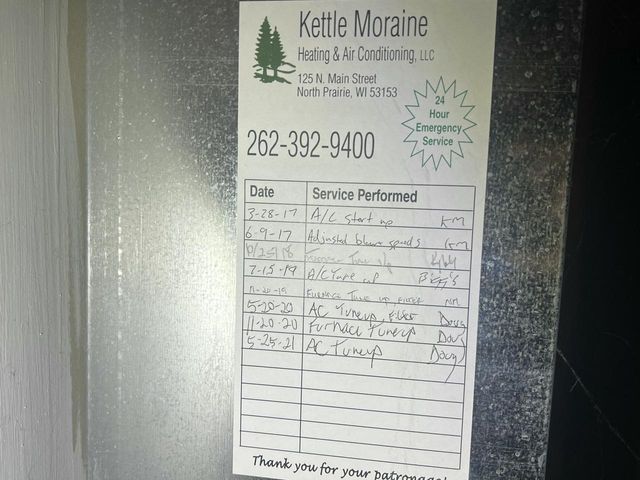 Kettle Moraine
Heating & Air Conditioning, LLC
125 N. Main Street
North Prairie, WI 53153
24
Hour
Emergency
Service
262-392-9400
Date Service Performed
3-28-17 A/C start up KM
6-9-17 Adjusted blower speeds KM
Furnace Tune
7-15-19 A/C Tune up
11-20-19 Furnace Tune up, Filter
5-20-20 AC Tuneup, Filter Doug
11-20-20 Furnace Tuneup Doug
5-25-21 AC Tuneup Doug
Thank you for your patronage!